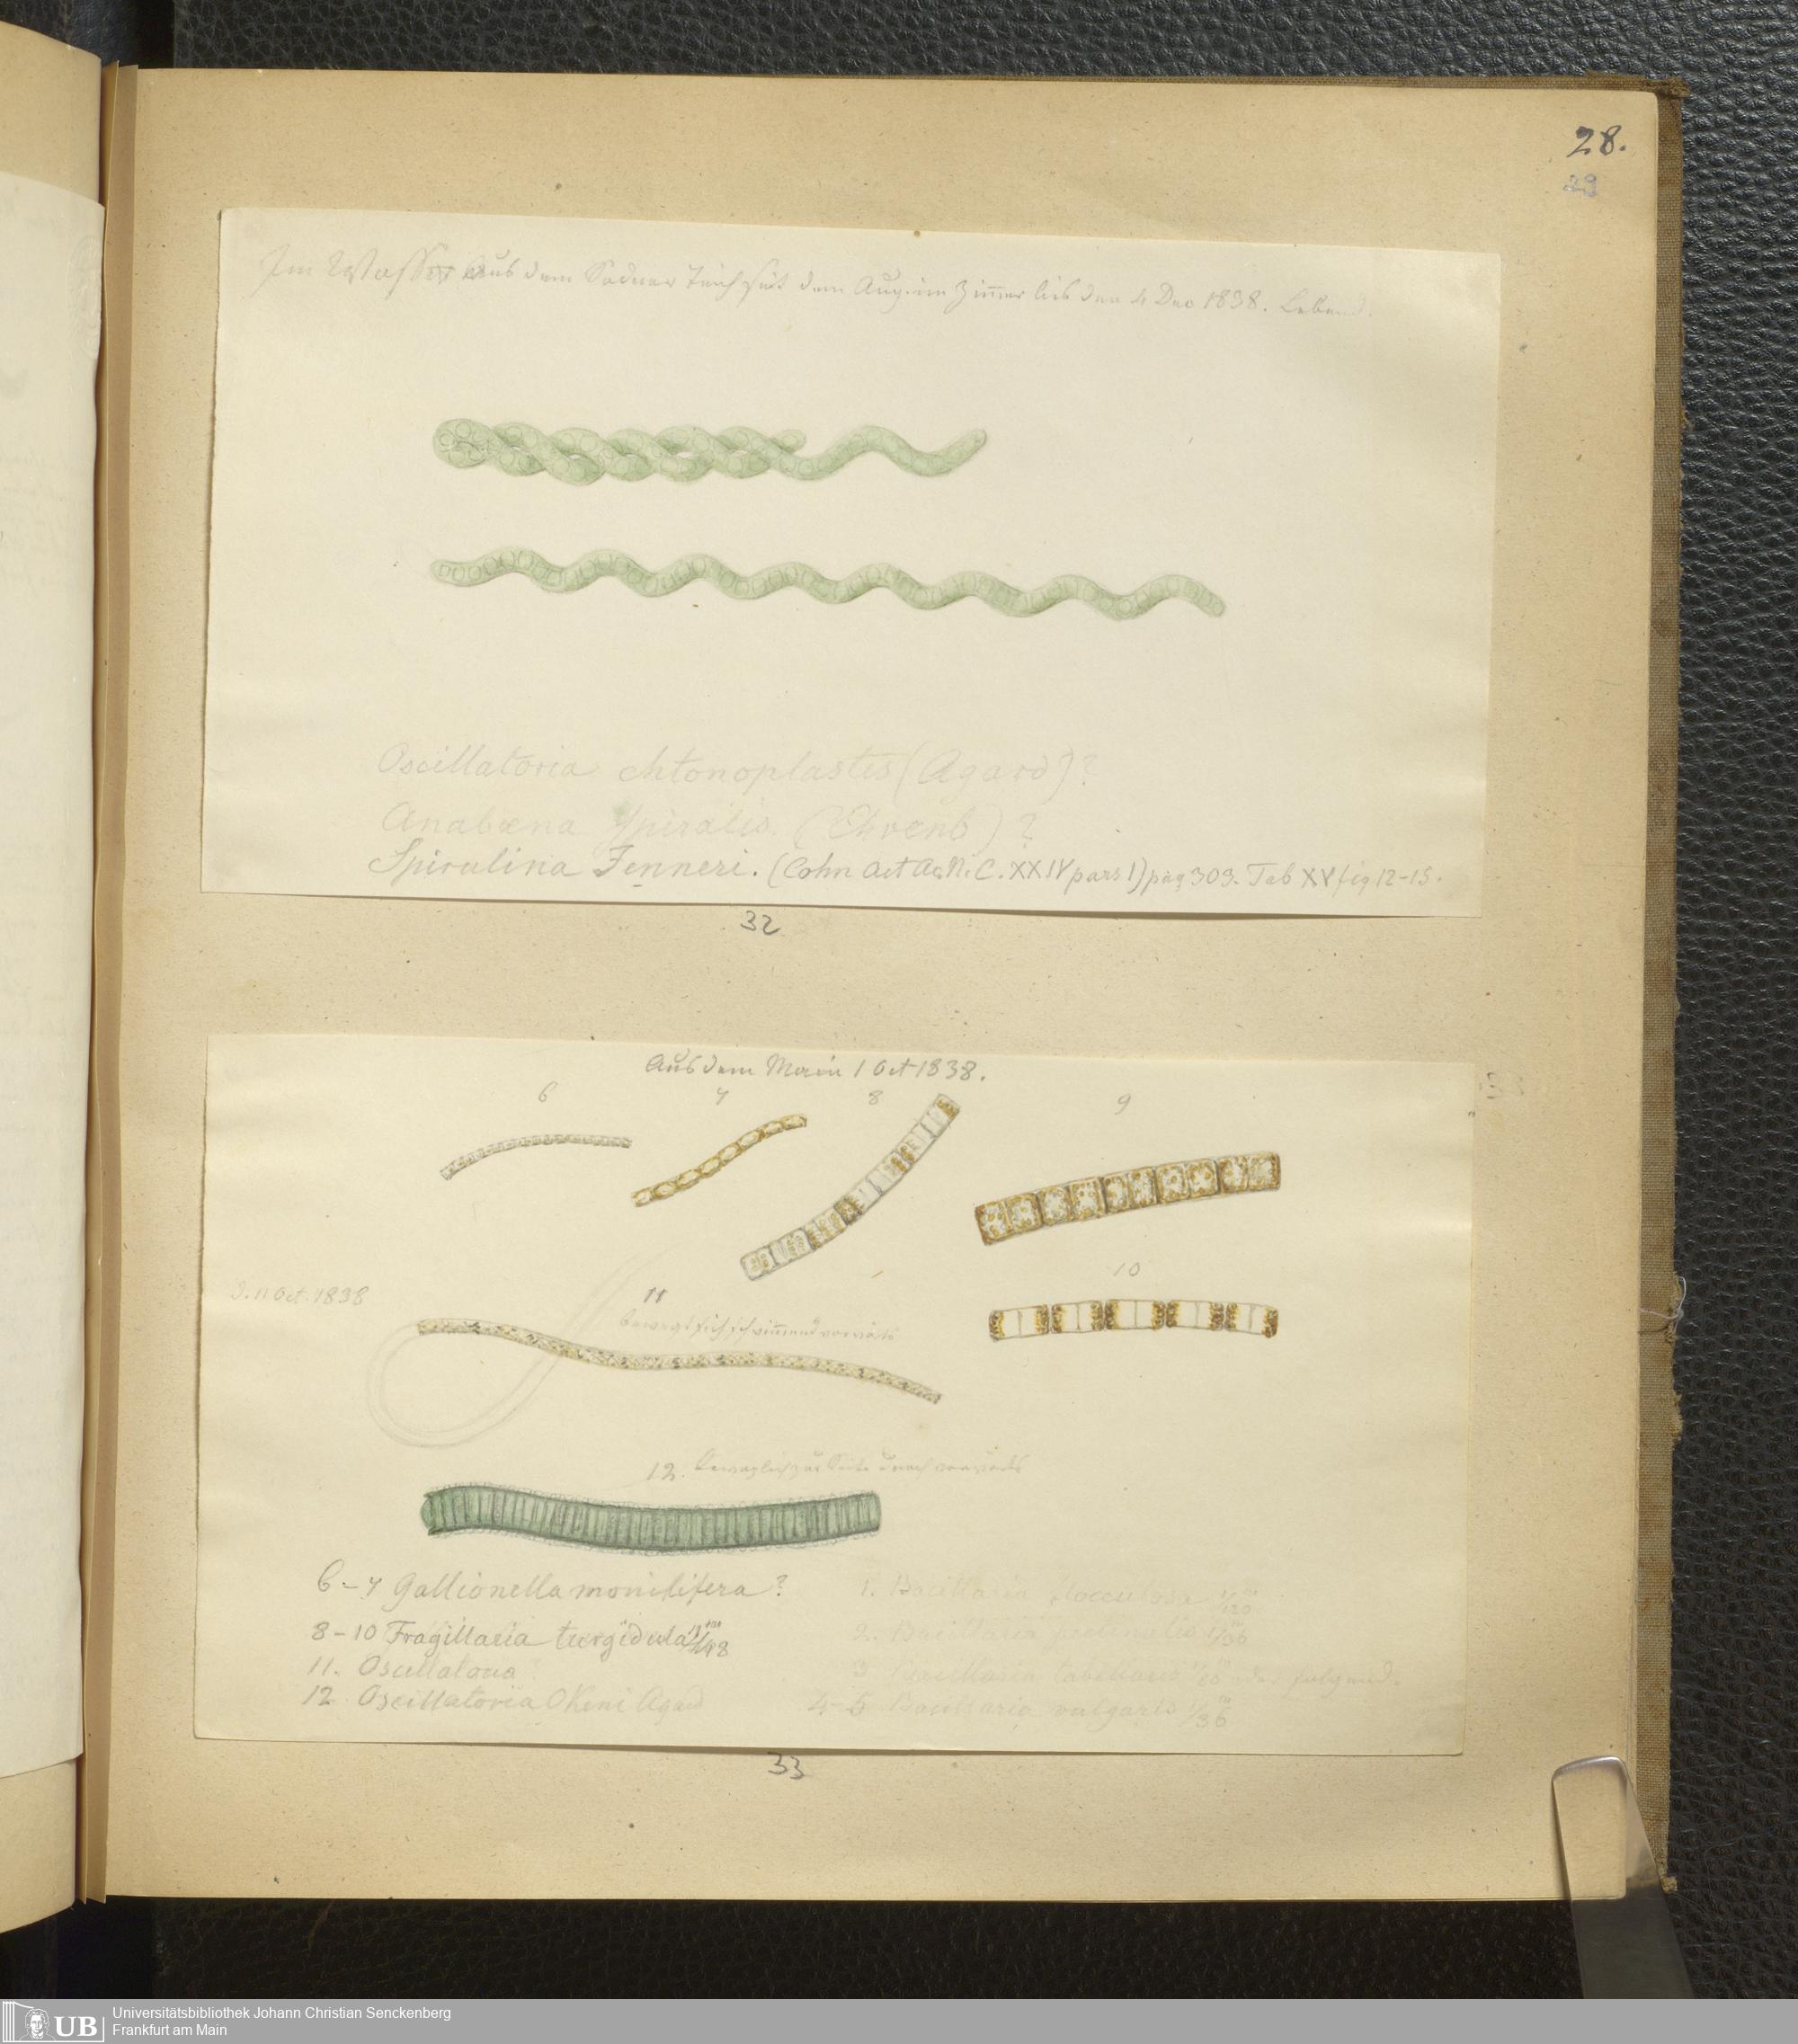 28.
29
Im Wasser aus dem Sodner Teich seit dem Aug. im Zimmer bis den 4 Dec 1838. Lebend.
Oscillatoria chtonoplastes (Agard)?
Anabæna spiralis. (Ehrenb)?
Spirulina Jenneri. (Cohn Act Ac. N. C. XXIV pars 1) pag 303. Tab XV fig 12-15.
32
Aus dem Main 1 Oct 1838.
6 7 8 9
10
d. 11 Oct. 1838
11
bewegt sich schwimmend vorwärts
12. beweglich zur Seite u nach vorwärts
6-7 Gallionella monilifera?
8-10 Fragillaria turgidula 1/48
11. Oscillatoria
12. Oscillatoria Okeni Agard
1. Bacillaria flocculosa 1/120
2. Bacillaria pectinalis 1/96
3 Bacillaria tabellaris
4-5 Bacillaria vulgaris 1/36
33
UB
Universitätsbibliothek Johann Christian Senckenberg
Frankfurt am Main